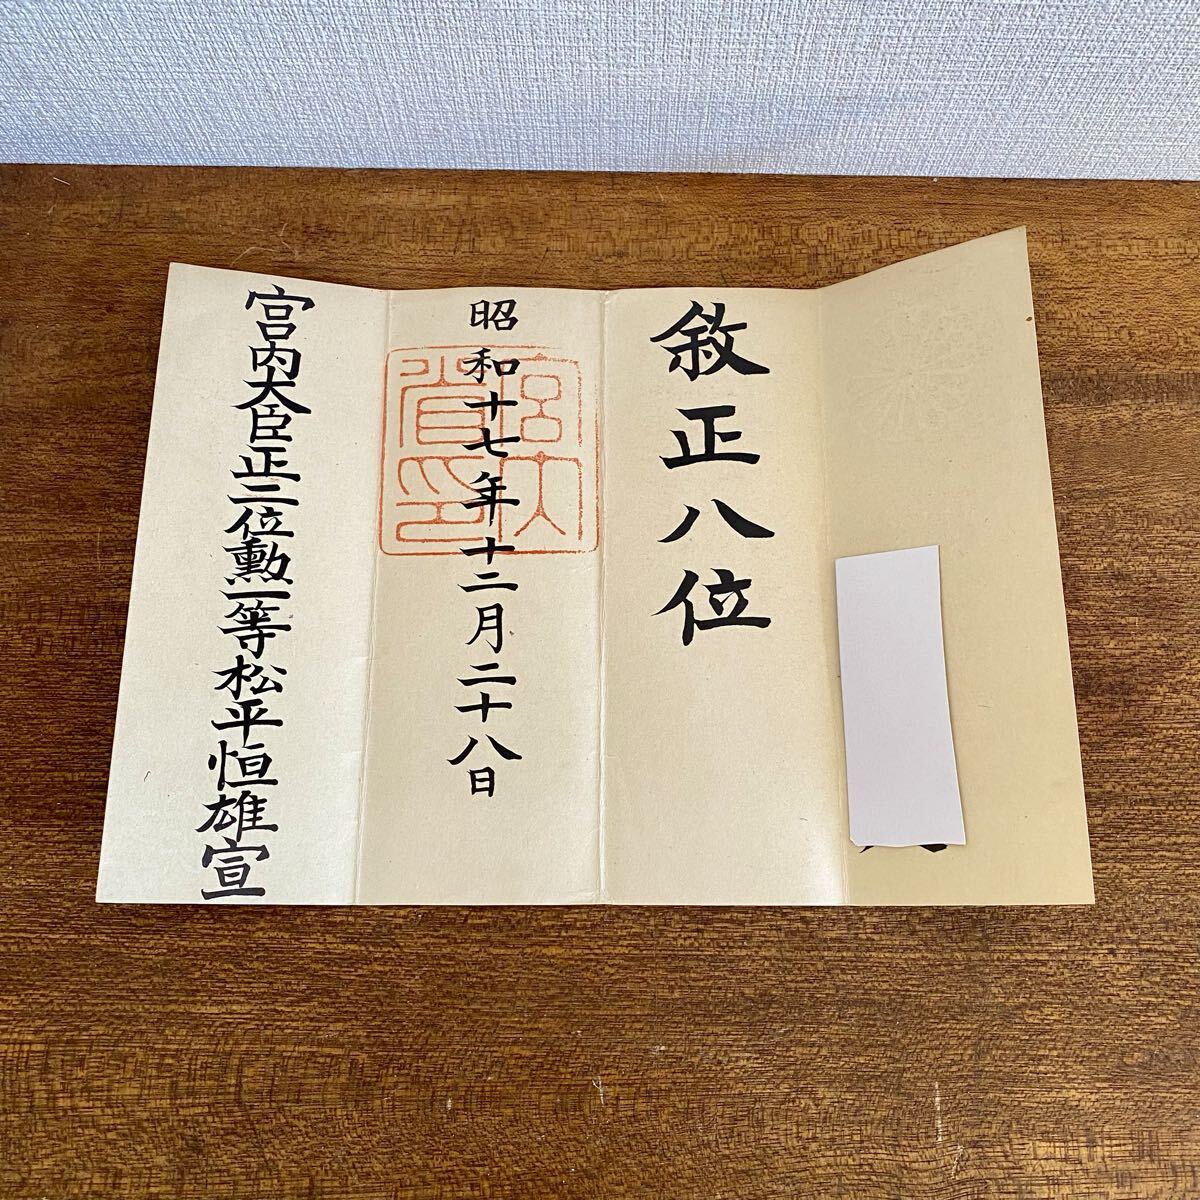 敘正八位
昭和十七年十二月二十八日
宮内省印
宮内大臣正二位勲一等松平恒雄宣